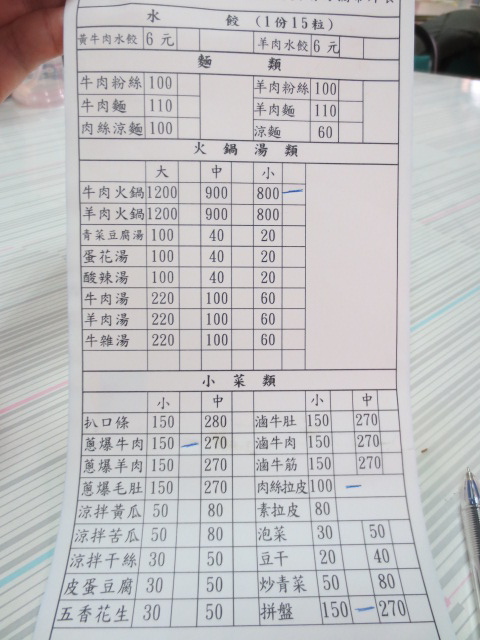 水 餃 (1份15粒)
黃牛肉水餃 6 元 羊肉水餃 6 元
麵 類
牛肉粉絲 100 羊肉粉絲 100
牛肉麵 110 羊肉麵 110
肉絲涼麵 100 涼麵 60
火 鍋 湯 類
大 中 小
牛肉火鍋 1200 900 800
羊肉火鍋 1200 900 800
青菜豆腐湯 100 40 20
蛋花湯 100 40 20
酸辣湯 100 40 20
牛肉湯 220 100 60
羊肉湯 220 100 60
牛雜湯 220 100 60
小 菜 類
小 中 小 中
扒口條 150 280 滷牛肚 150 270
蔥爆牛肉 150 270 滷牛肉 150 270
蔥爆羊肉 150 270 滷牛筋 150 270
蔥爆毛肚 150 270 肉絲拉皮 100
涼拌黃瓜 50 80 素拉皮 80
涼拌苦瓜 50 80 泡菜 30 50
涼拌干絲 30 50 豆干 20 40
皮蛋豆腐 30 50 炒青菜 50 80
五香花生 30 50 拼盤 150 270